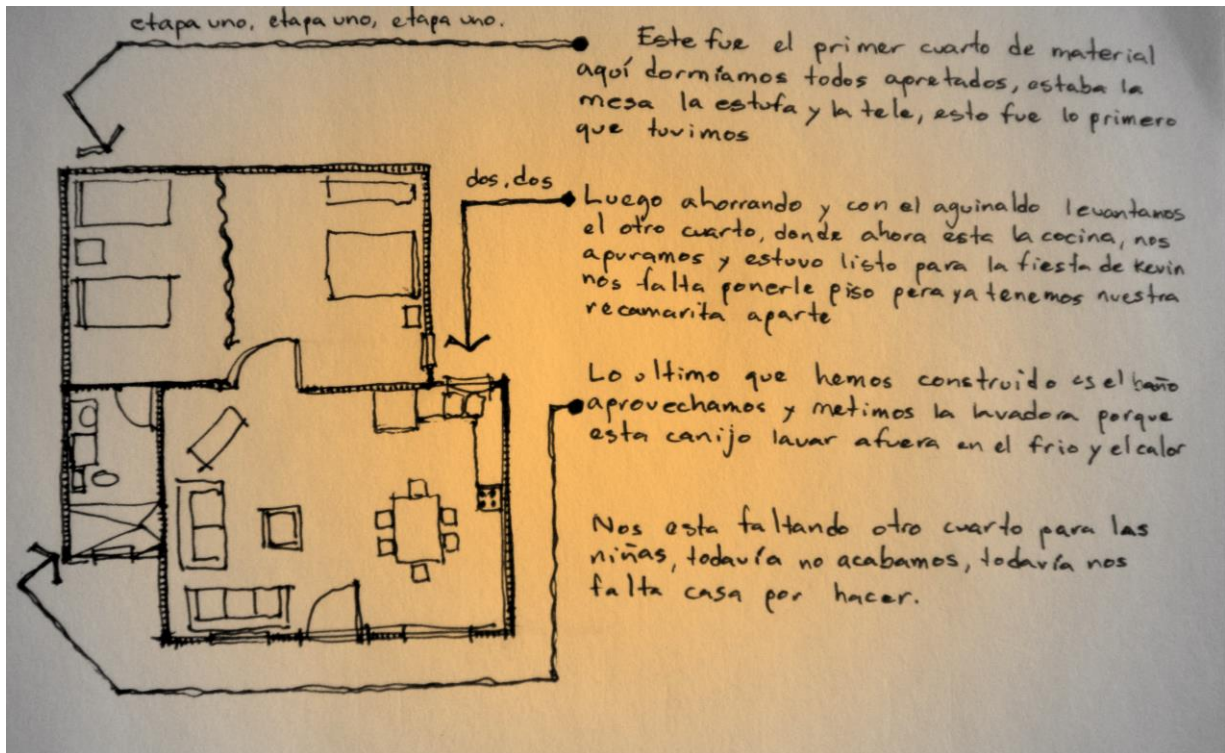 etapa uno, etapa uno, etapa uno.
Este fue el primer cuarto de material
aquí dormíamos todos apretados, estaba la
mesa la estufa y la tele, esto fue lo primero
que tuvimos
dos, dos
Luego ahorrando y con el aguinaldo levantamos
el otro cuarto, donde ahora esta la cocina, nos
apuramos y estuvo listo para la fiesta de Kevin
nos falta ponerle piso pera ya tenemos nuestra
recamarita aparte
Lo ultimo que hemos construido es el baño
aprovechamos y metimos la lavadora porque
esta canijo lavar afuera en el frio y el calor
Nos esta faltando otro cuarto para las
niñas, todavía no acabamos, todavía nos
falta casa por hacer.